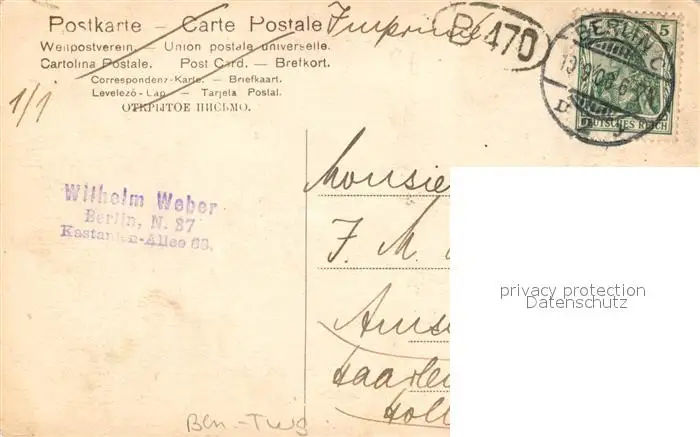 Postkarte — Carte Postale
Imprimé
B 470
Weltpostverein. — Union postale universelle.
Cartolina Postale. Post Card. — Brefkort.
Correspondenz-Karte. — Briefkaart.
Levelezö-Lap. — Tarjeta Postal.
ОТКРЫТОЕ ПИСЬМО.
1/1
BERLIN C
5
DEUTSCHES REICH
Wilhelm Weber
Berlin, N. 37
Kastanien-Allee 68.
Monsie
J. M.
Ams
Haarle
Holl
privacy protection
Datenschutz
Bln.-